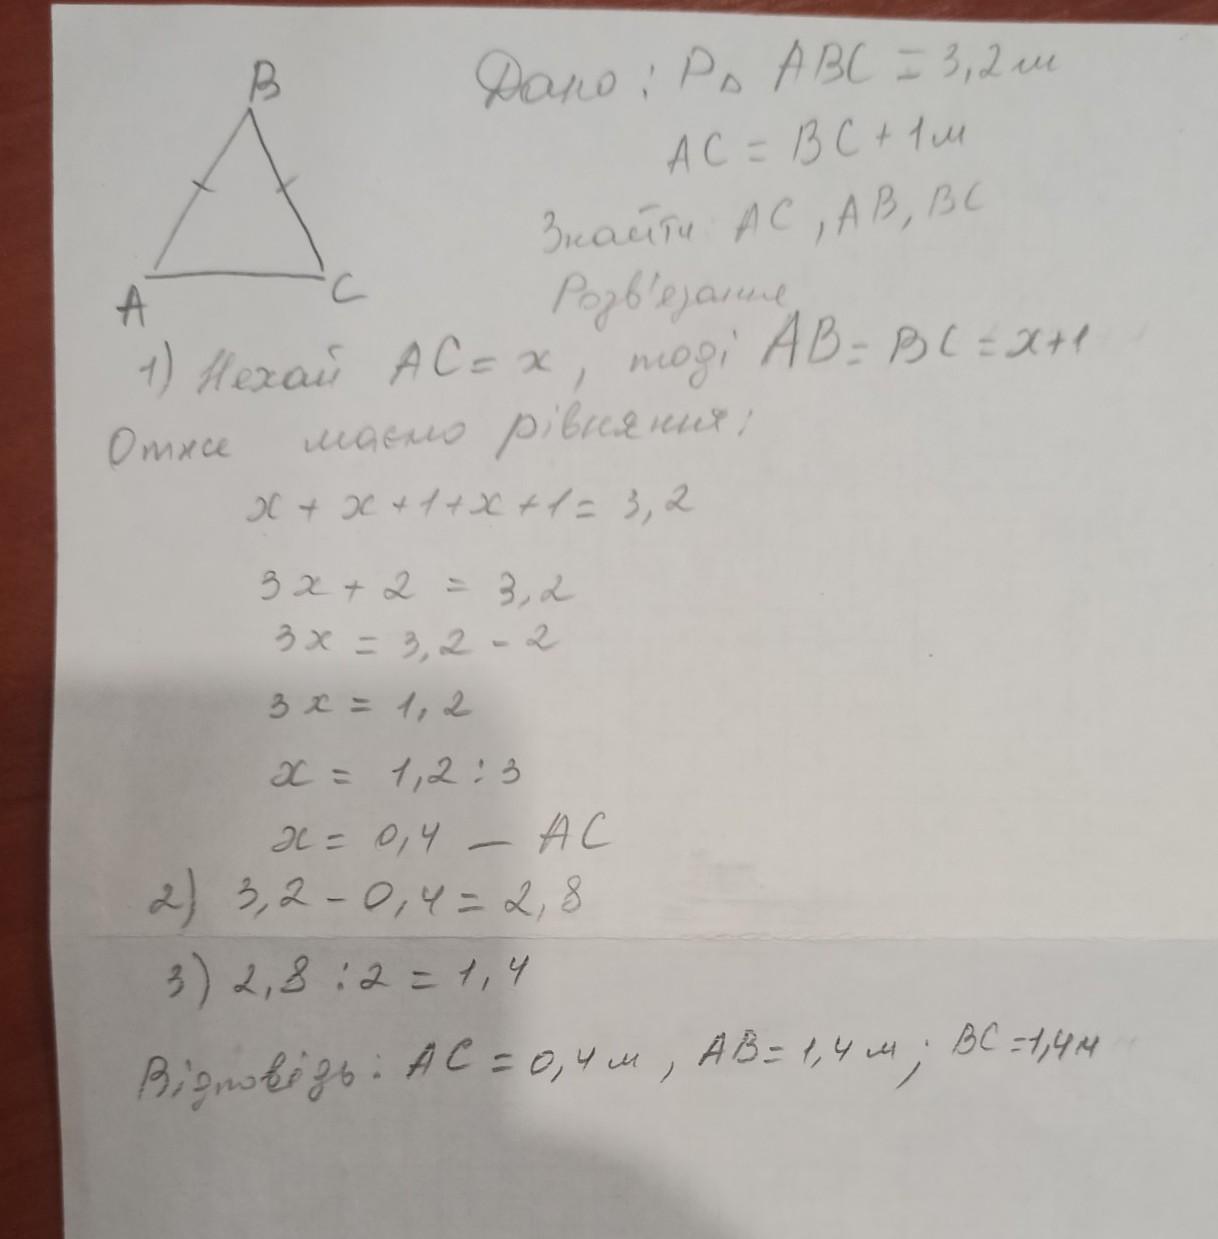 B
A
C
Дано: P△ ABC = 3,2 м
AC = BC + 1 м
Знайти AC, AB, BC
Розв'язання
1) Нехай AC = x, тоді AB = BC = x+1
Отже маємо рівняння:
x + x + 1 + x + 1 = 3,2
3x + 2 = 3,2
3x = 3,2 - 2
3x = 1,2
x = 1,2 : 3
x = 0,4 — AC
2) 3,2 - 0,4 = 2,8
3) 2,8 : 2 = 1,4
Відповідь: AC = 0,4 м, AB = 1,4 м; BC = 1,4 м